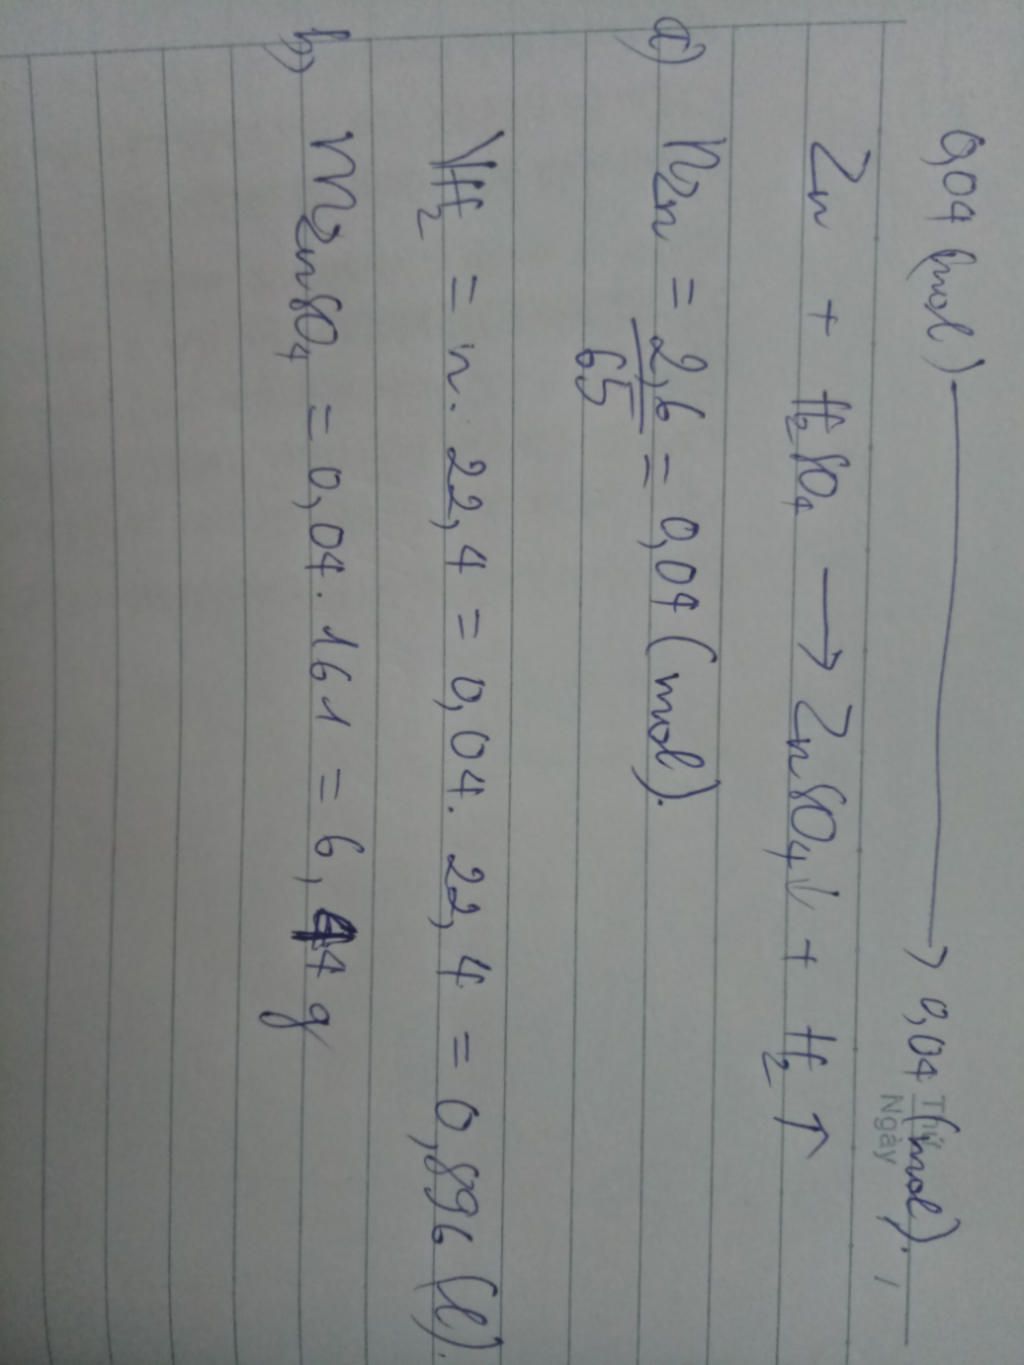 0,04 (mol) ⟶ 0,04 (mol).
Thứ
Ngày /
Zn + H₂SO₄ ⟶ ZnSO₄↓ + H₂↑
a) nZn = 2,6/65 = 0,04 (mol).
VH₂ = n. 22,4 = 0,04. 22,4 = 0,896 (l).
b) mZnSO₄ = 0,04. 161 = 6,44 g